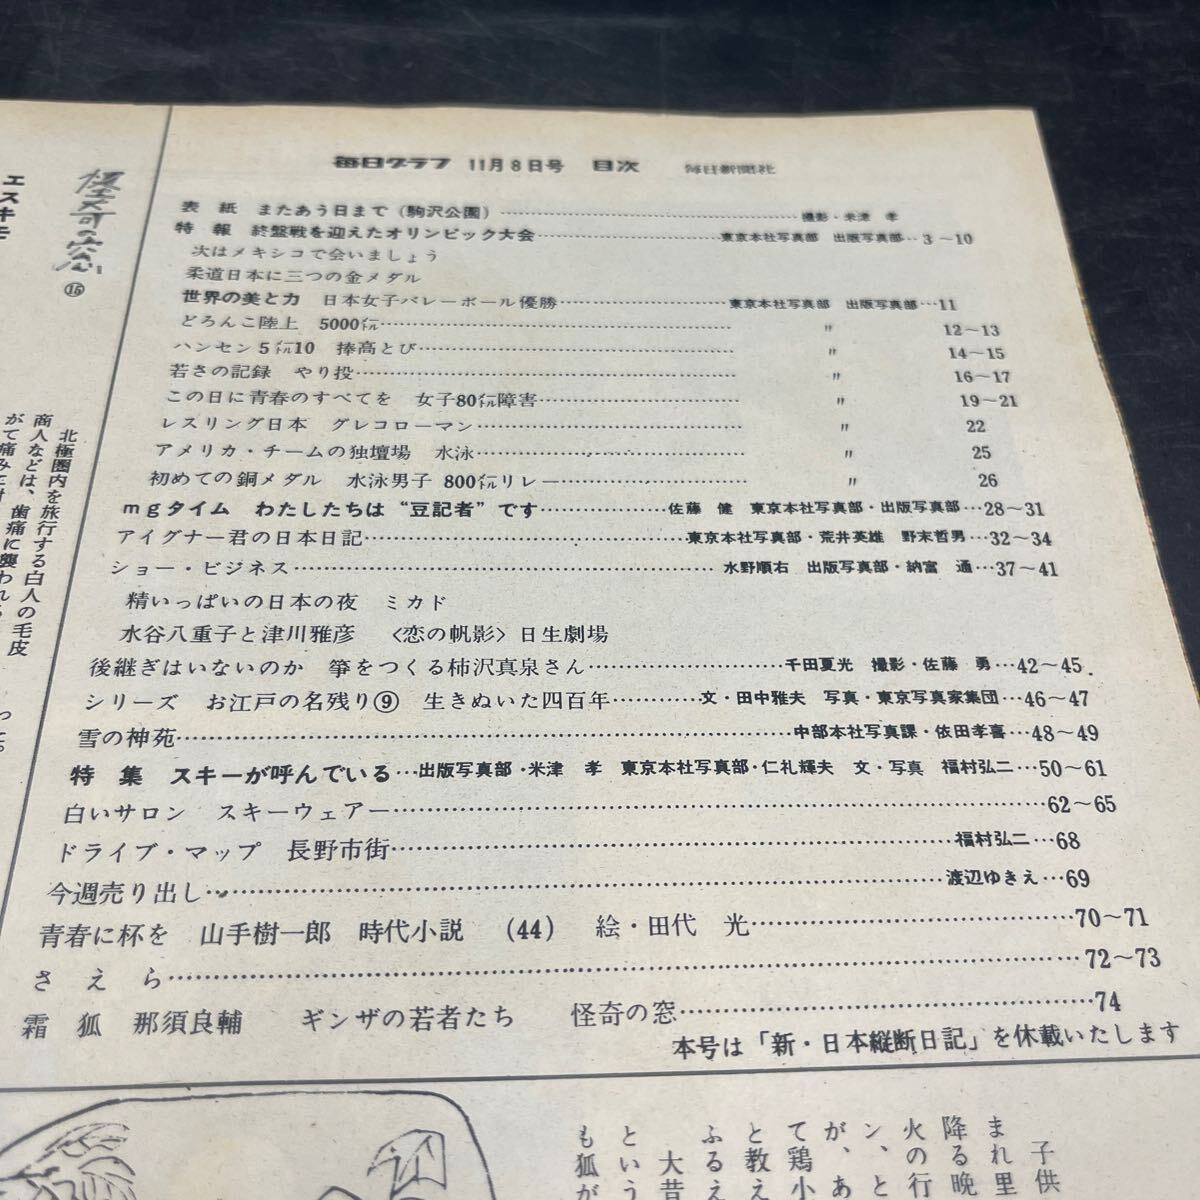 毎日グラフ 11月8日号 目次 毎日新聞社
表紙 またあう日まで（駒沢公園）…撮影・米津 孝
特報 終盤戦を迎えたオリンピック大会…東京本社写真部 出版写真部…3～10
次はメキシコで会いましょう
柔道日本に三つの金メダル
世界の美と力 日本女子バレーボール優勝…東京本社写真部 出版写真部…11
どろんこ陸上 5000㍍…〃 12～13
ハンセン5㍍10 捧高とび…〃 14～15
若さの記録 やり投…〃 16～17
この日に青春のすべてを 女子80㍍障害…〃 19～21
レスリング日本 グレコローマン…〃 22
アメリカ・チームの独壇場 水泳…〃 25
初めての銅メダル 水泳男子 800㍍リレー…〃 26
mgタイム わたしたちは“豆記者”です…佐藤 健 東京本社写真部・出版写真部…28～31
アイグナー君の日本日記…東京本社写真部・荒井英雄 野末哲男…32～34
ショー・ビジネス…水野順右 出版写真部・納富 通…37～41
精いっぱいの日本の夜 ミカド
水谷八重子と津川雅彦 〈恋の帆影〉日生劇場
後継ぎはいないのか 箏をつくる柿沢真泉さん…千田夏光 撮影・佐藤 勇…42～45
シリーズ お江戸の名残り⑨ 生きぬいた四百年…文・田中雅夫 写真・東京写真家集団…46～47
雪の神苑…中部本社写真課・依田孝喜…48～49
特集 スキーが呼んでいる…出版写真部・米津 孝 東京本社写真部・仁礼輝夫 文・写真 福村弘二…50～61
白いサロン スキーウェアー…62～65
ドライブ・マップ 長野市街…福村弘二…68
今週売り出し…渡辺ゆきえ…69
青春に杯を 山手樹一郎 時代小説 （44） 絵・田代 光…70～71
さえら…72～73
霜狐 那須良輔 ギンザの若者たち 怪奇の窓…74
本号は「新・日本縦断日記」を休載いたします
怪奇の窓 ⑮
エスキモ
北極圏内を旅行する白人の毛皮
商人などは、歯痛に襲われる
がて痛みに
子供
まれ里
降る晩
火の行
ン、と
が、あ
て鶏小
と教え
ふるえ
大昔
という
も狐が